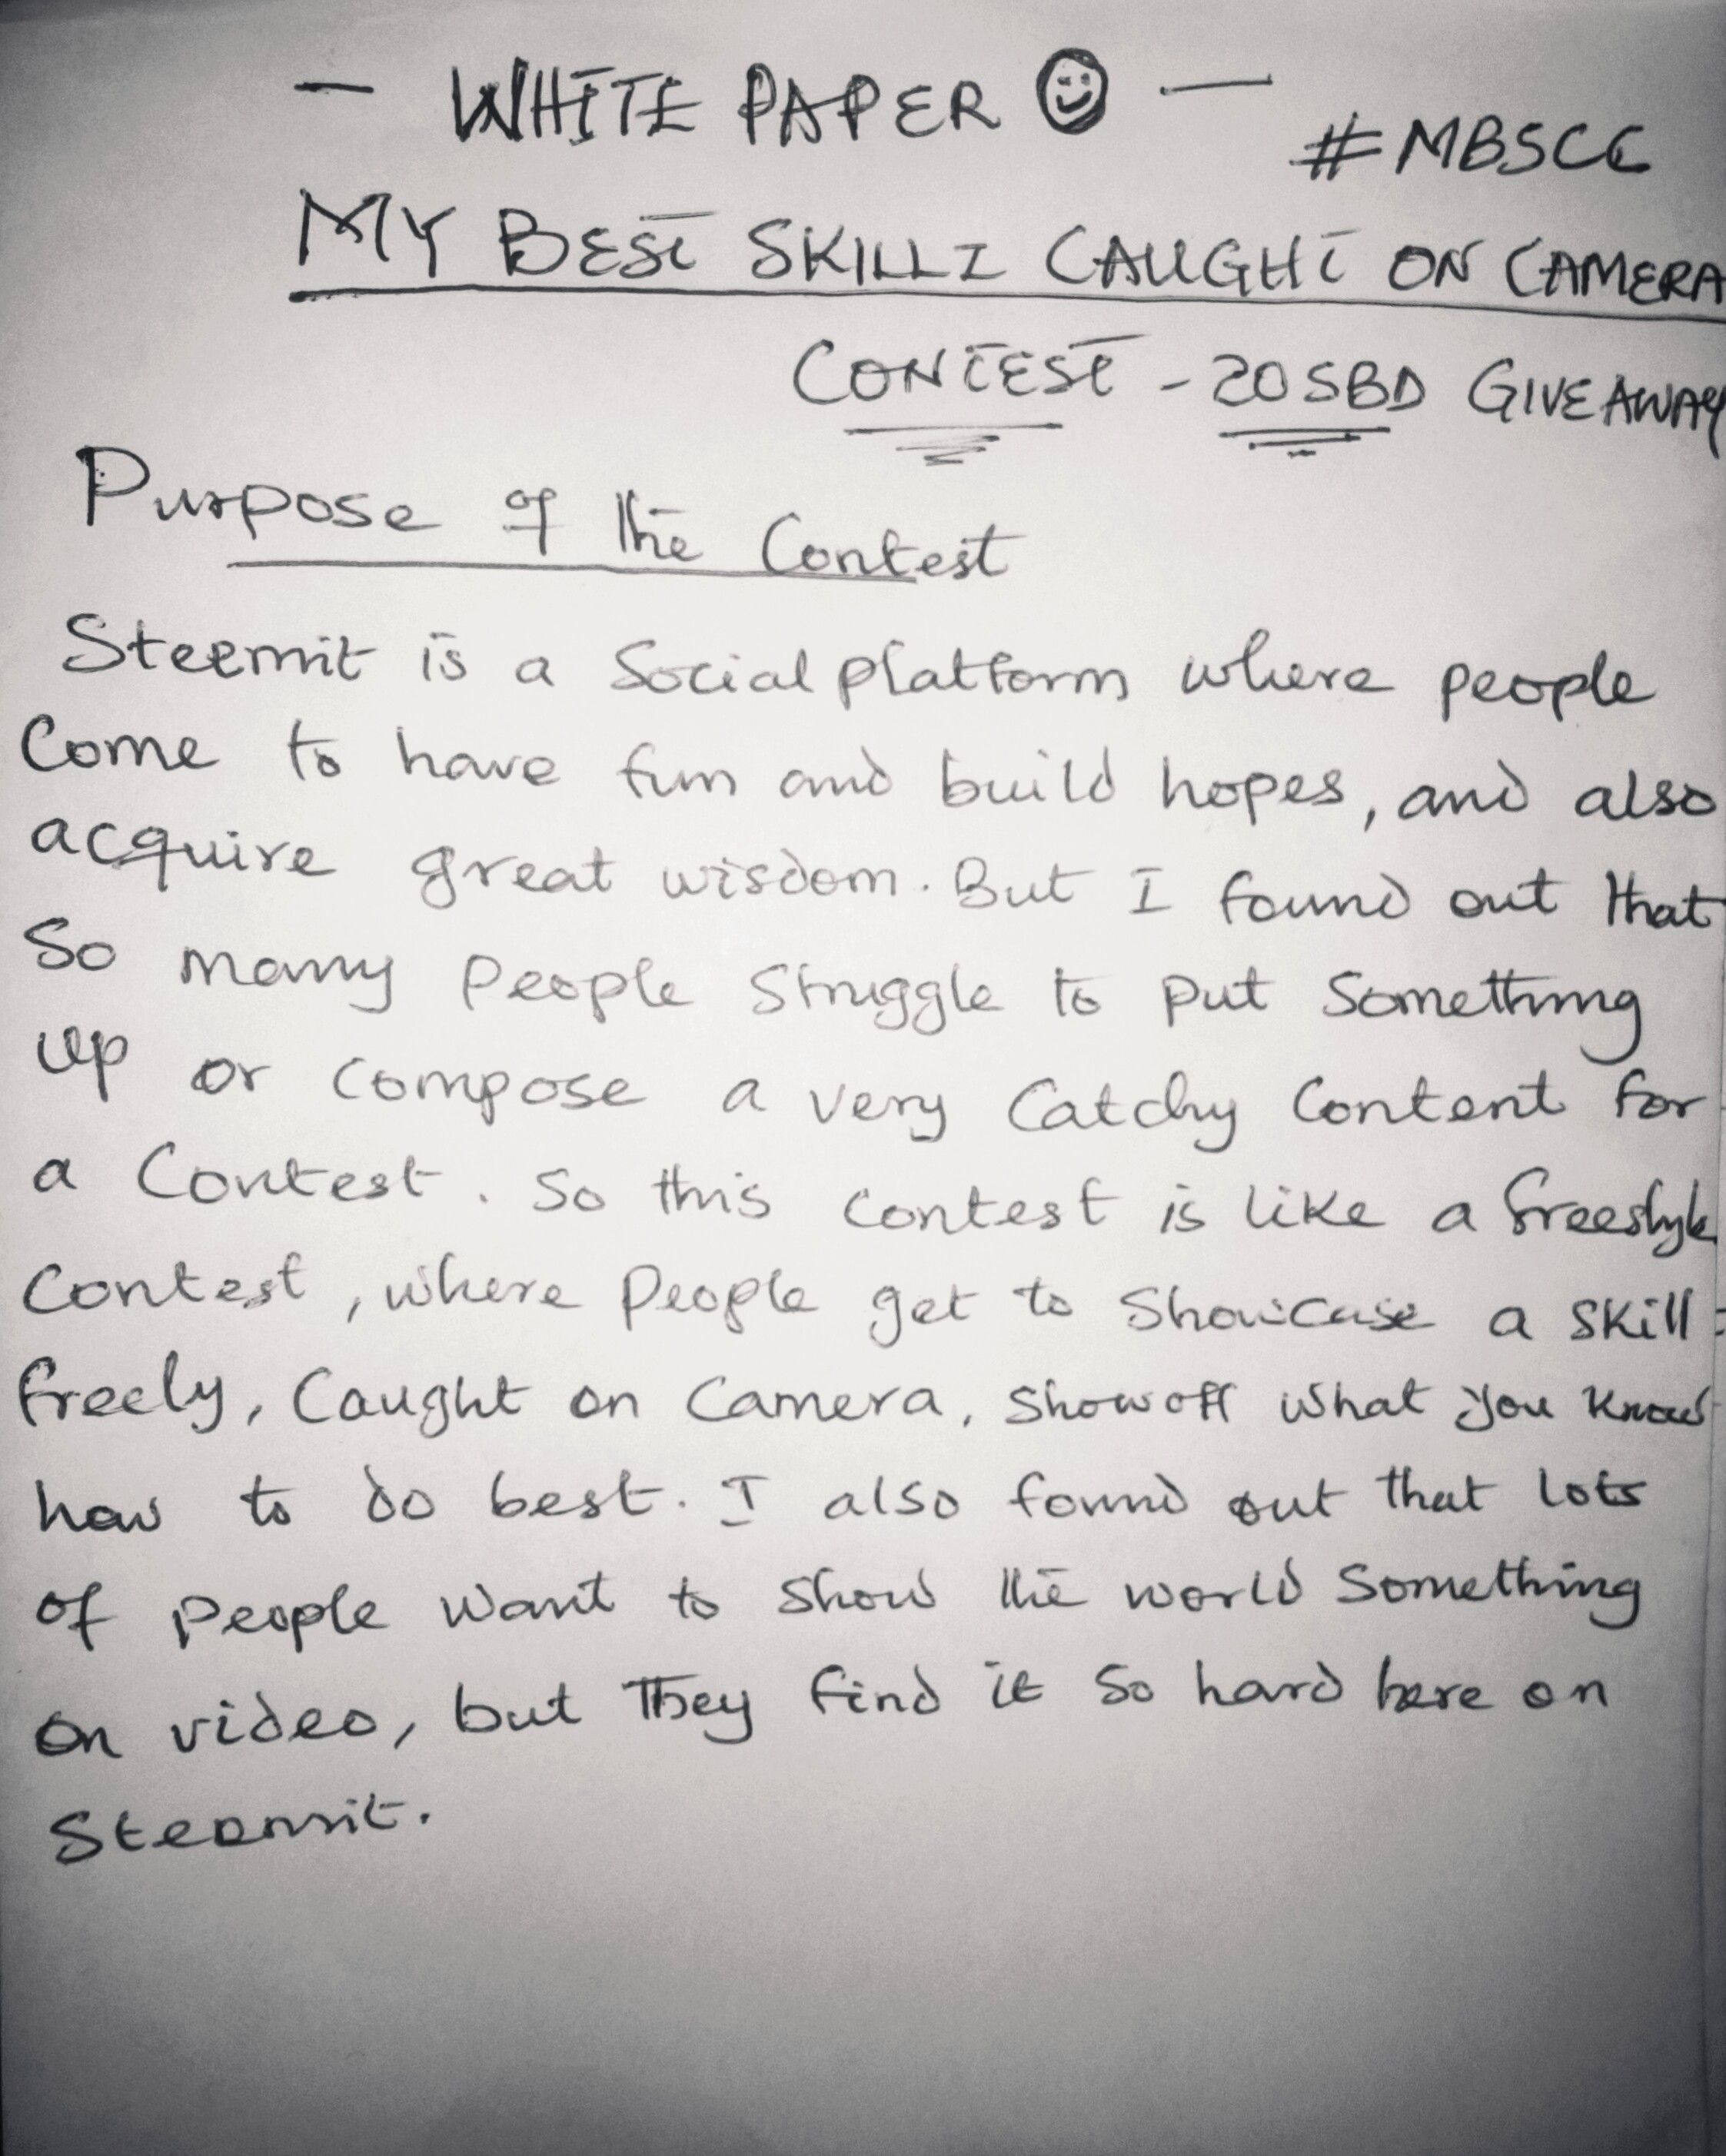 — WHITE PAPER ☺ —
#MBSCC
MY BEST SKILLZ CAUGHT ON CAMERA
CONTEST - 20SBD GIVEAWAY
Purpose of the Contest
Steemit is a Social platform where people
Come to have fun and build hopes, and also
acquire great wisdom. But I found out that
So many People Struggle to put Something
up or compose a very Catchy Content for
a Contest. So this contest is like a freestyle
Contest, where People get to Showcase a skill
freely, Caught on Camera, show off what you know
how to do best. I also found out that lots
of People want to show the world Something
on video, but They find it so hard here on
Steemit.